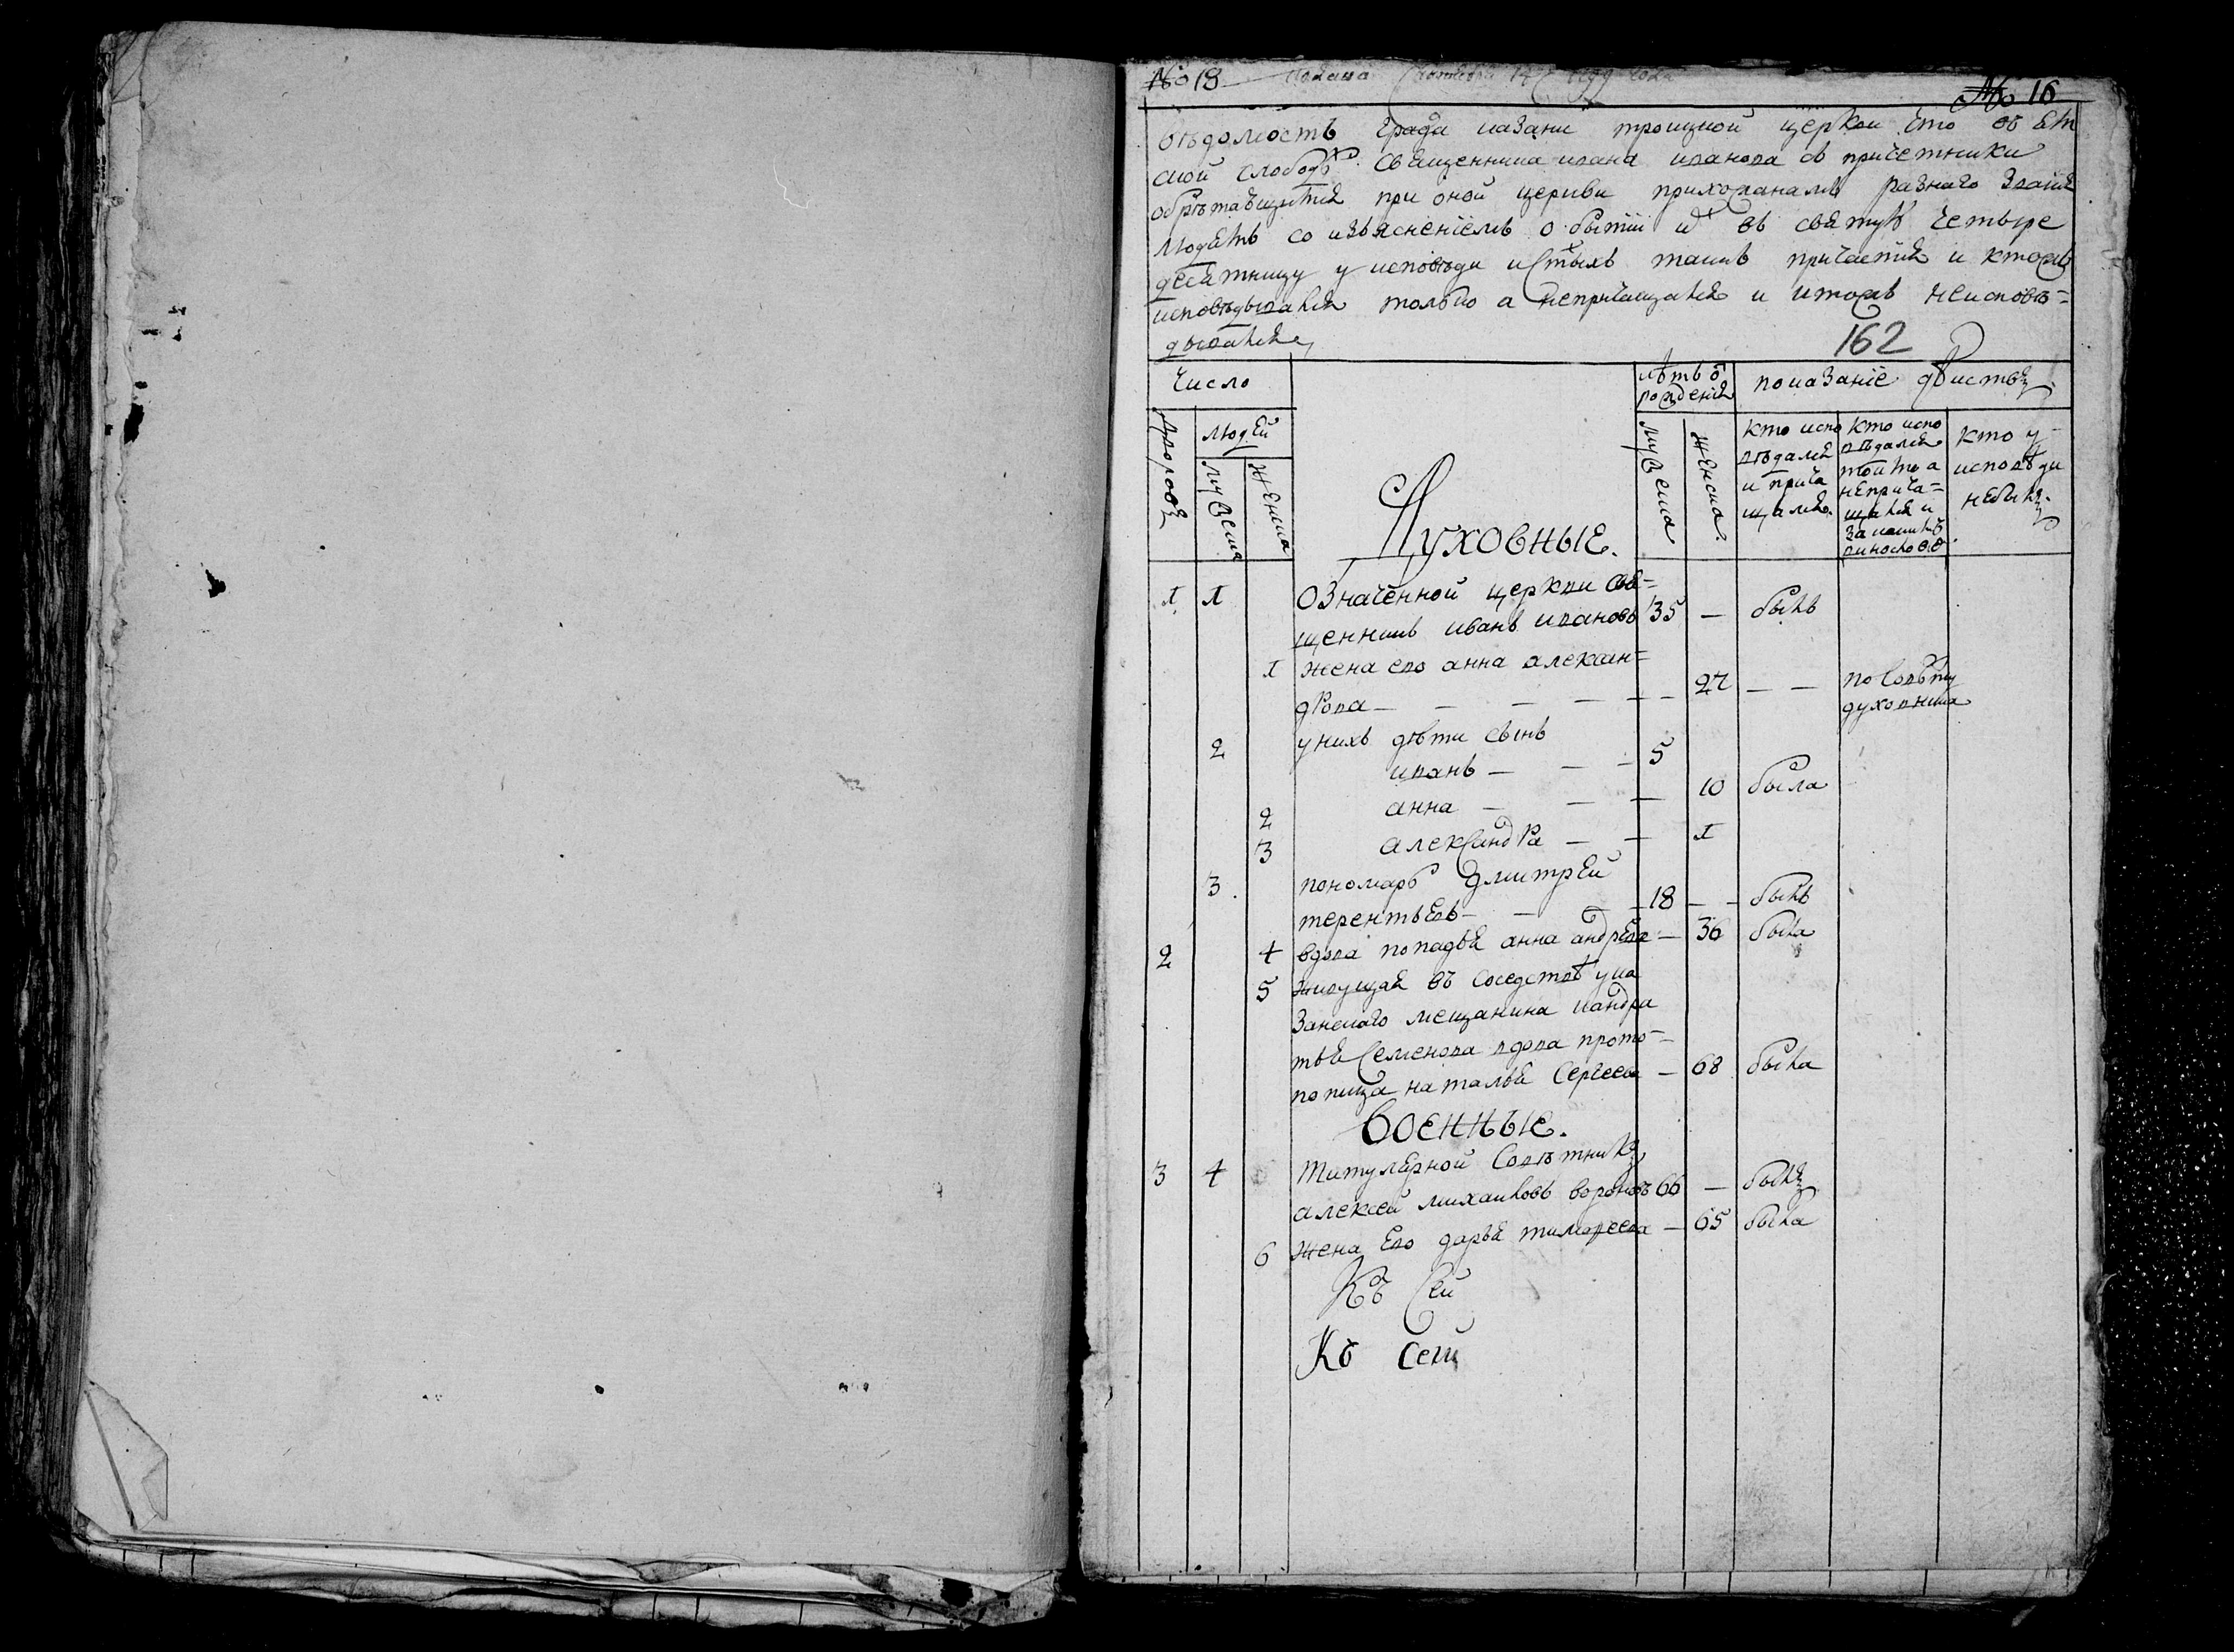 № 13
№ 16
вѣдомость града казани троицкой церкви что въ Ям
ской слободѣ священника ивана иванова съ причетники
обрѣтающимся при оной церкви прихожанамъ разнаго званія
людямъ со изъясненіемъ о бытіи въ святую четыре
десятницу у исповѣди и стыхъ таинъ причастія и ктожъ
исповѣдывался только а непричащался и ктожъ неисповѣ=
дывался
162
Число
лѣтъ ѿ рожденія
показаніе дѣйства
дворовъ
людей
мужеска
женска
Духовные.
мужеска
женска
кто испо вѣдался и прича щался.
кто испо вѣдался токмо а неприча= щался и за какимъ винословіемъ.
кто у исповѣди небылъ.
1 1 Означенной церкви свя=
щенникъ иванъ ивановъ 35 — былъ
1 жена ево анна алексан=
дрова — — — — — 27 — — по совѣту духовника
2 у нихъ дѣти сынъ
иванъ — — — 5
2 анна — — — 10 была
3 александра — — 1
3 пономарь дмитрей
терентьевъ — — — 18 — — былъ
2 4 вдова попадья анна андрѣева — 36 была
5 живущая въ соседствѣ у ка
занскаго мещанина кандра
тья семенова вдова прото=
попица наталья сергеева — 68 была
Военные.
3 4 титулярной совѣтникъ
алексей михаиловъ вороновъ 66 — былъ
6 жена ево дарья тимофеева — 65 была
Къ сей
Къ сей